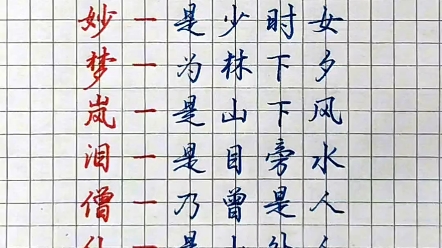 妙一是少时女
梦一为林下夕
岚一是山下风
泪一是目旁水
僧一乃曾是人